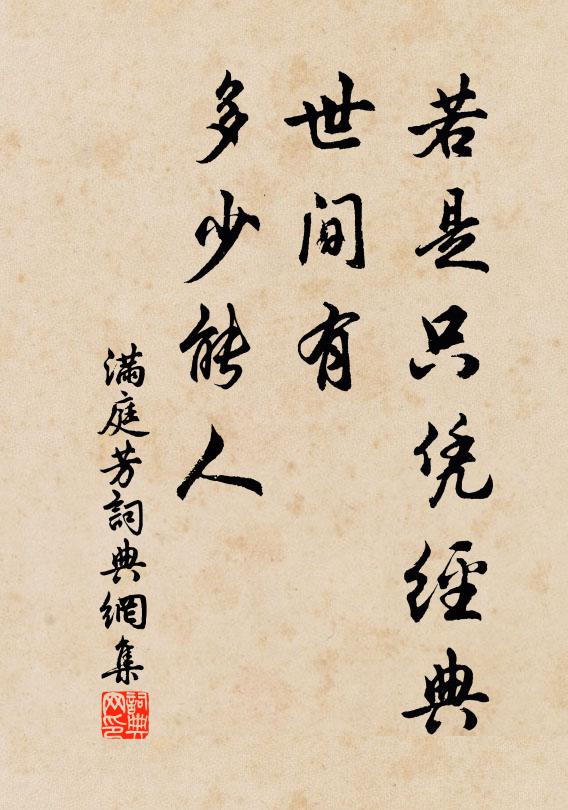 若是只凭經典
世间有
多少能人
满庭芳詞典網集
詞典
网印